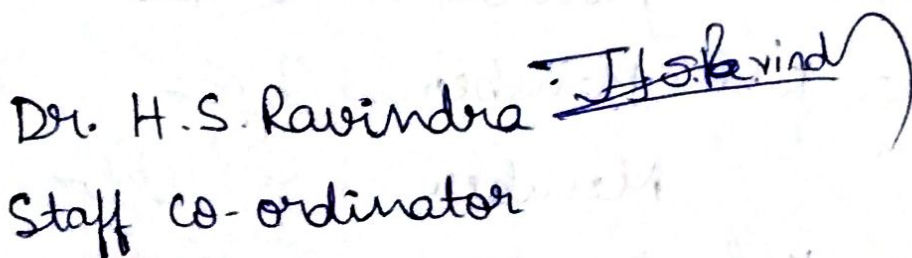 Dr. H.S. Ravindra H.S.Ravind
Staff co-ordinator